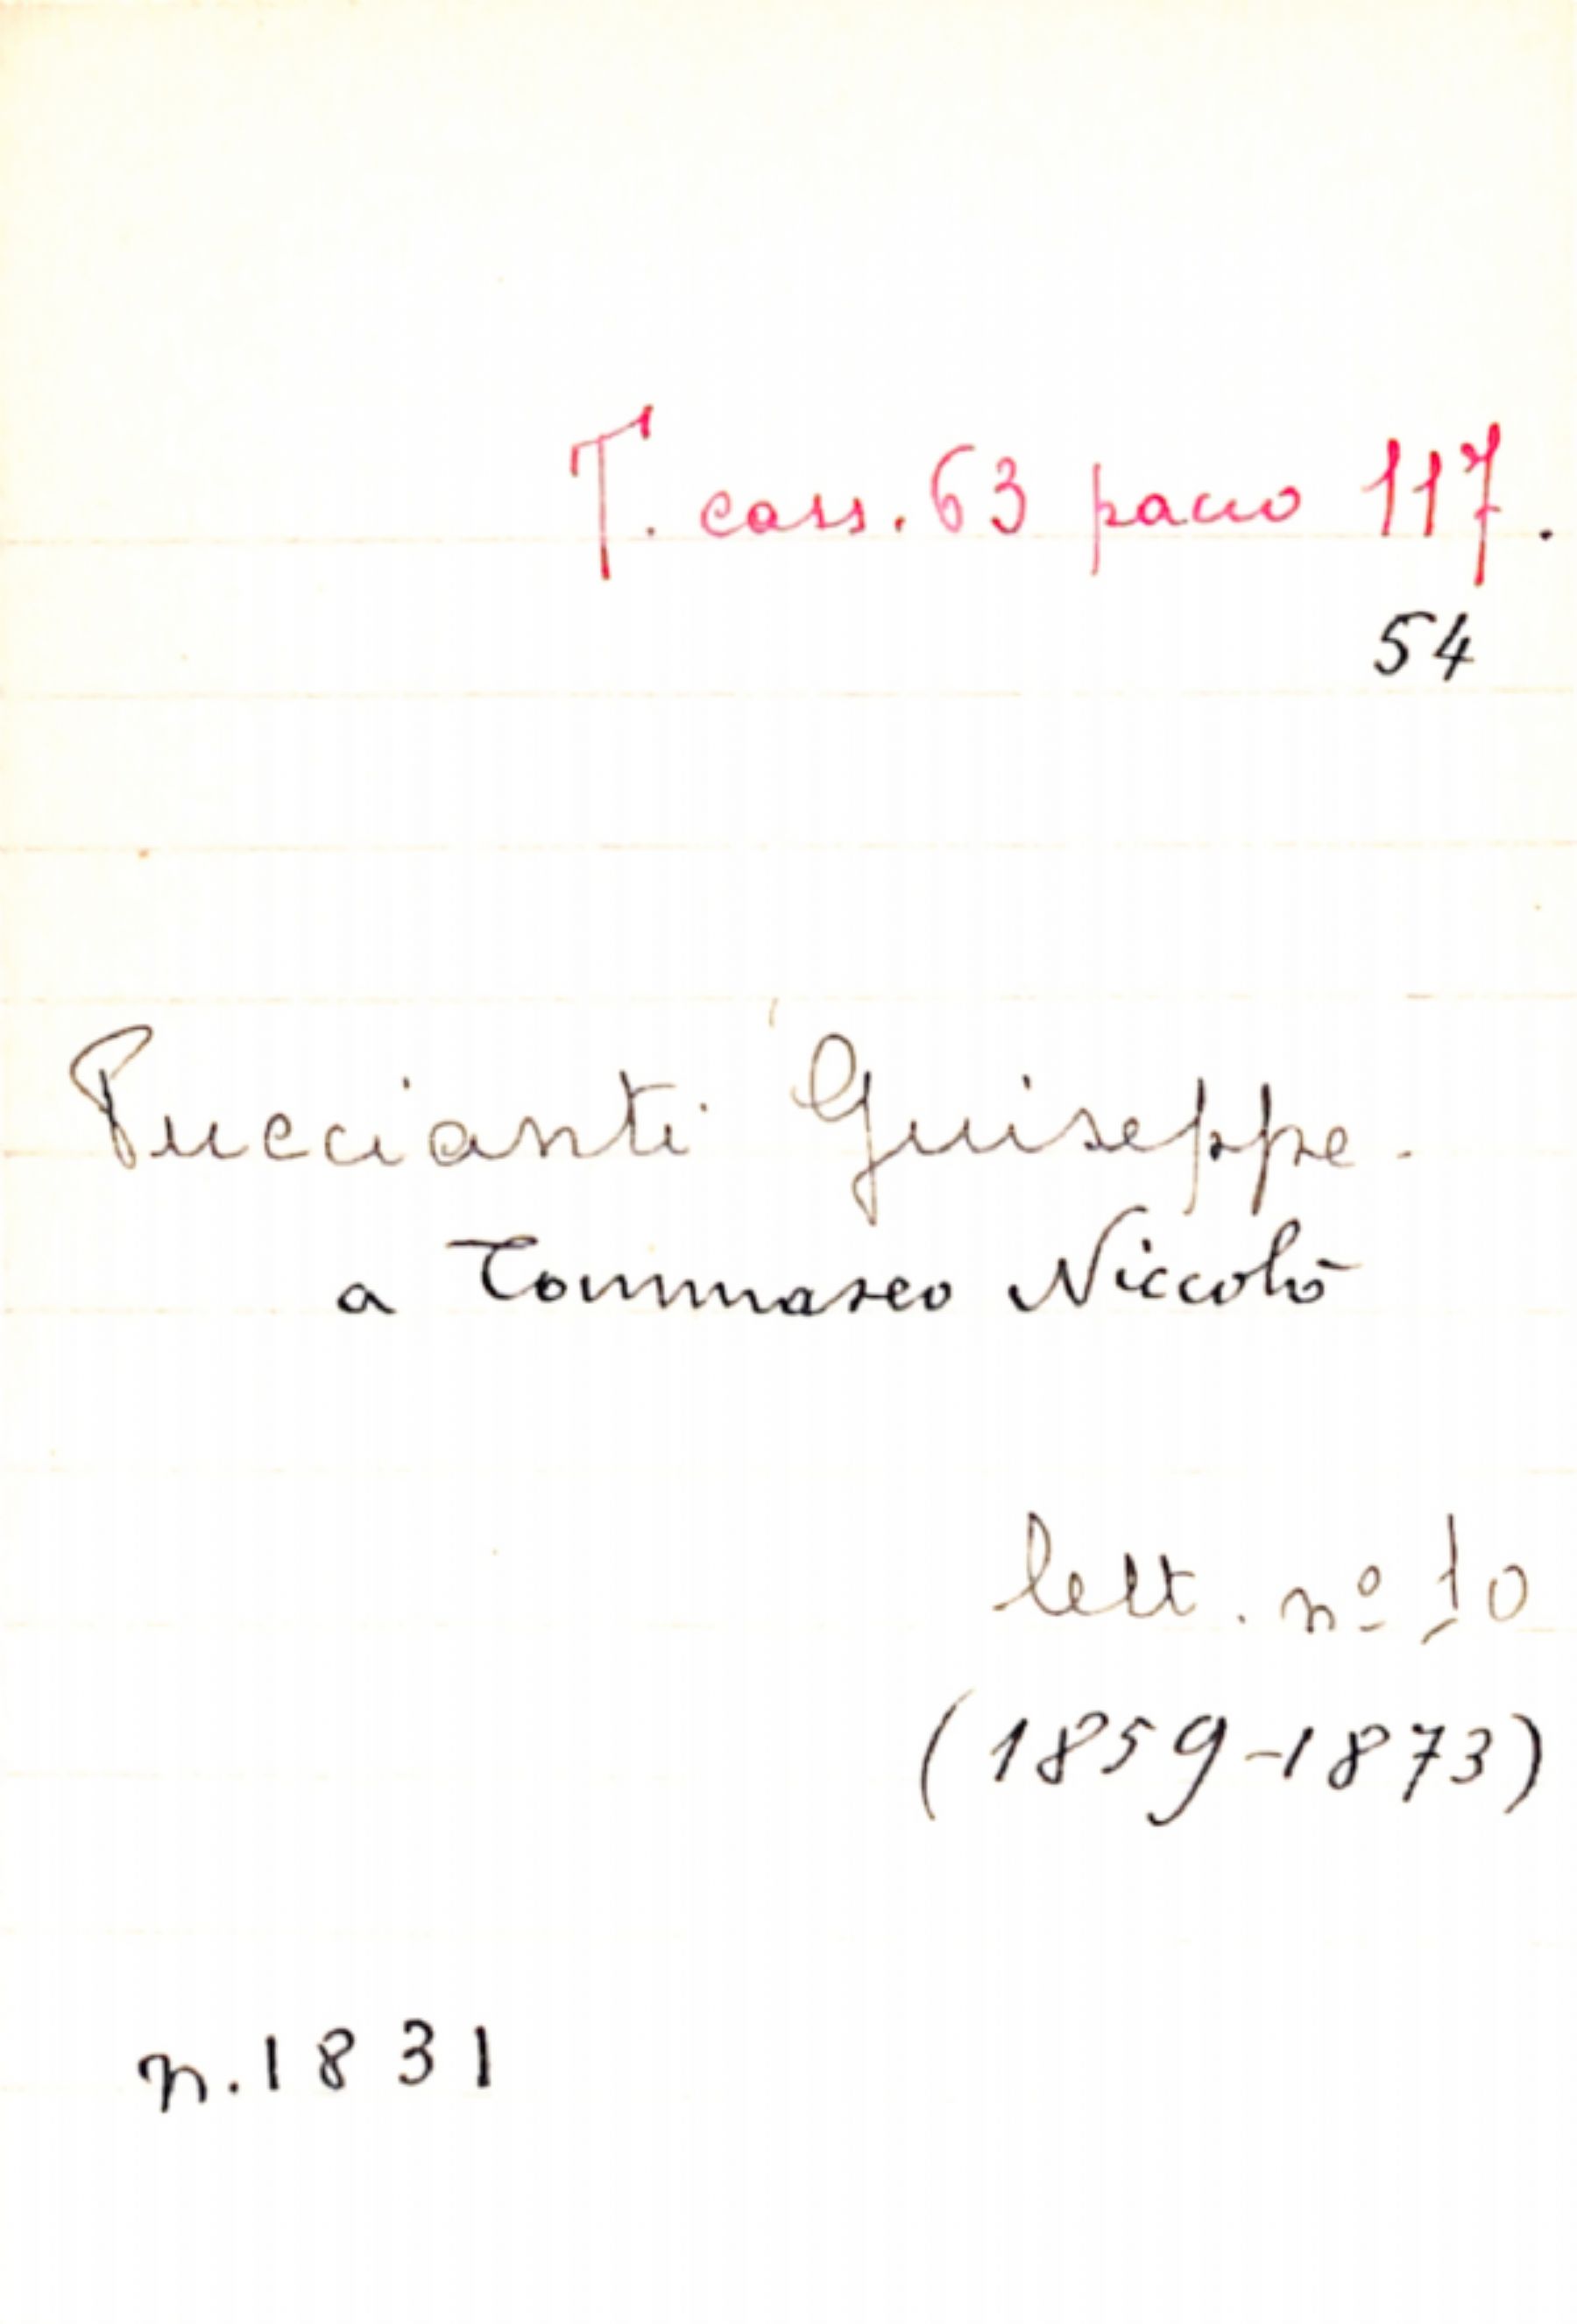 T. cass. 63 pacco 117.
54
Puccianti Giuseppe.
a Tommaseo Niccolò
lett. nº 10
(1859-1873)
n. 1831